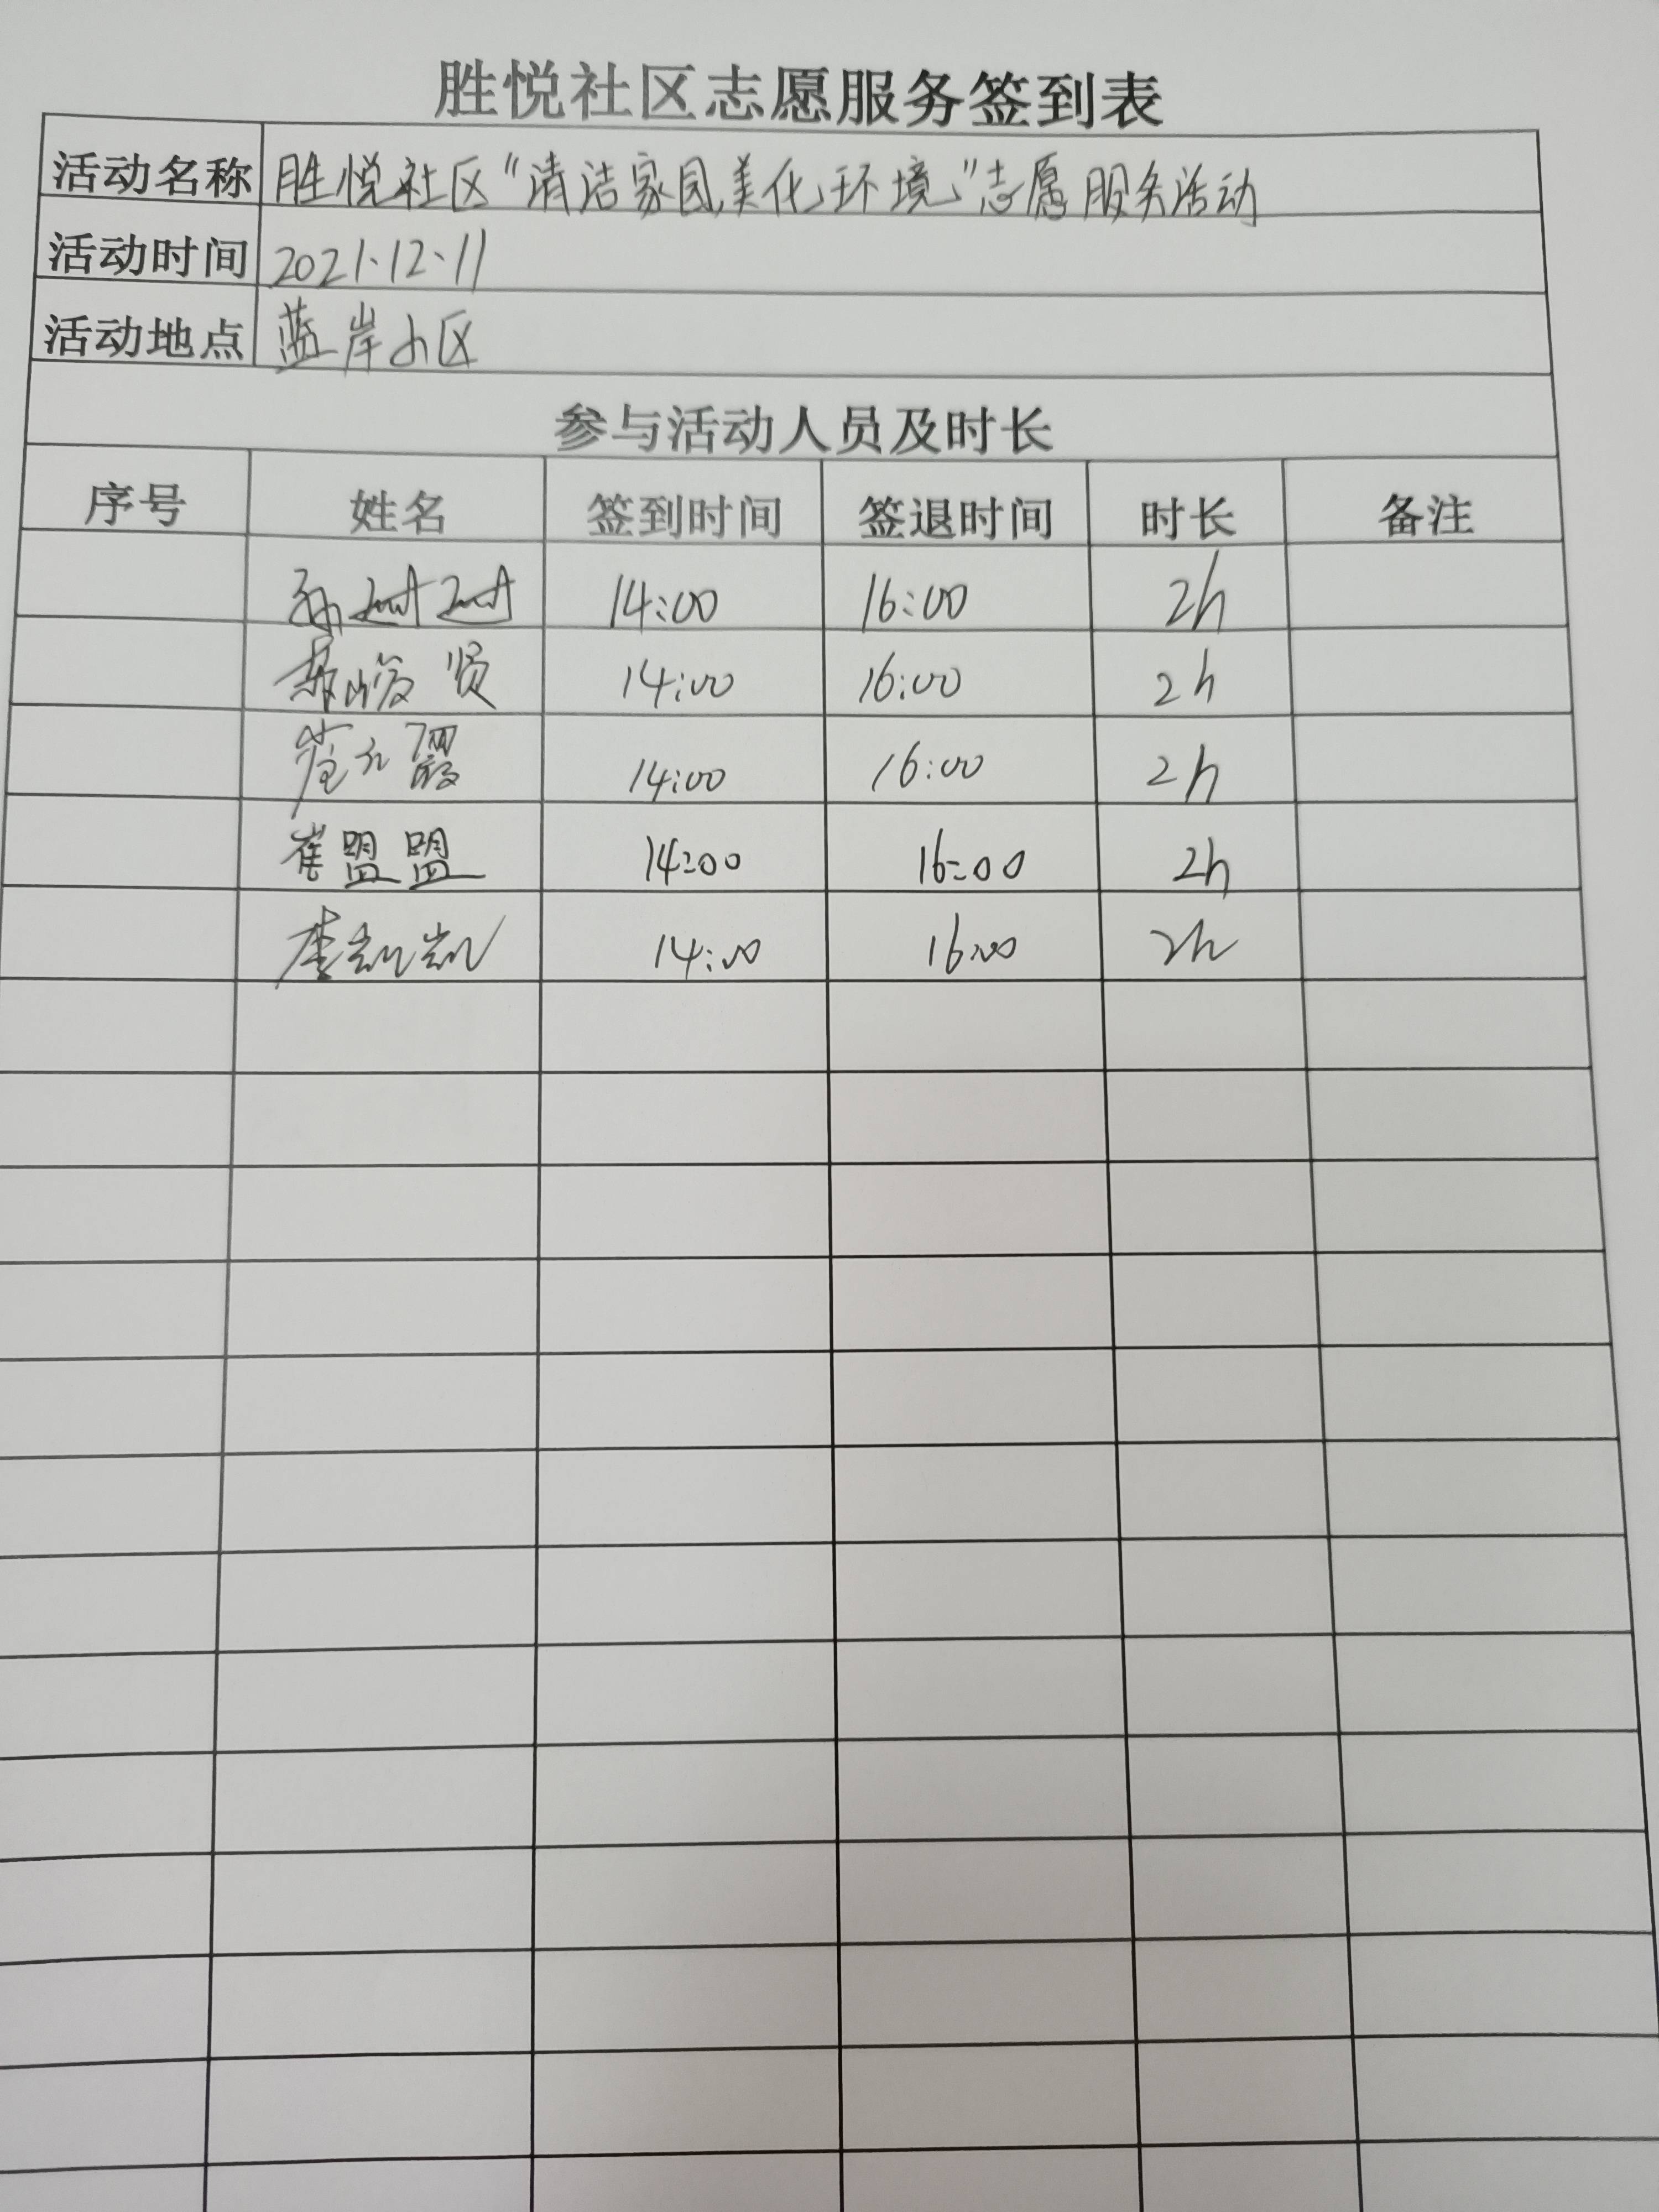 胜悦社区志愿服务签到表
活动名称 胜悦社区“清洁家园美化环境”志愿服务活动
活动时间 2021.12.11
活动地点 蓝岸小区
参与活动人员及时长
序号 姓名 签到时间 签退时间 时长 备注
14:00 16:00 2h
贤 14:00 16:00 2h
14:00 16:00 2h
崔盟盟 14:00 16:00 2h
李凯凯 14:00 16:00 2h